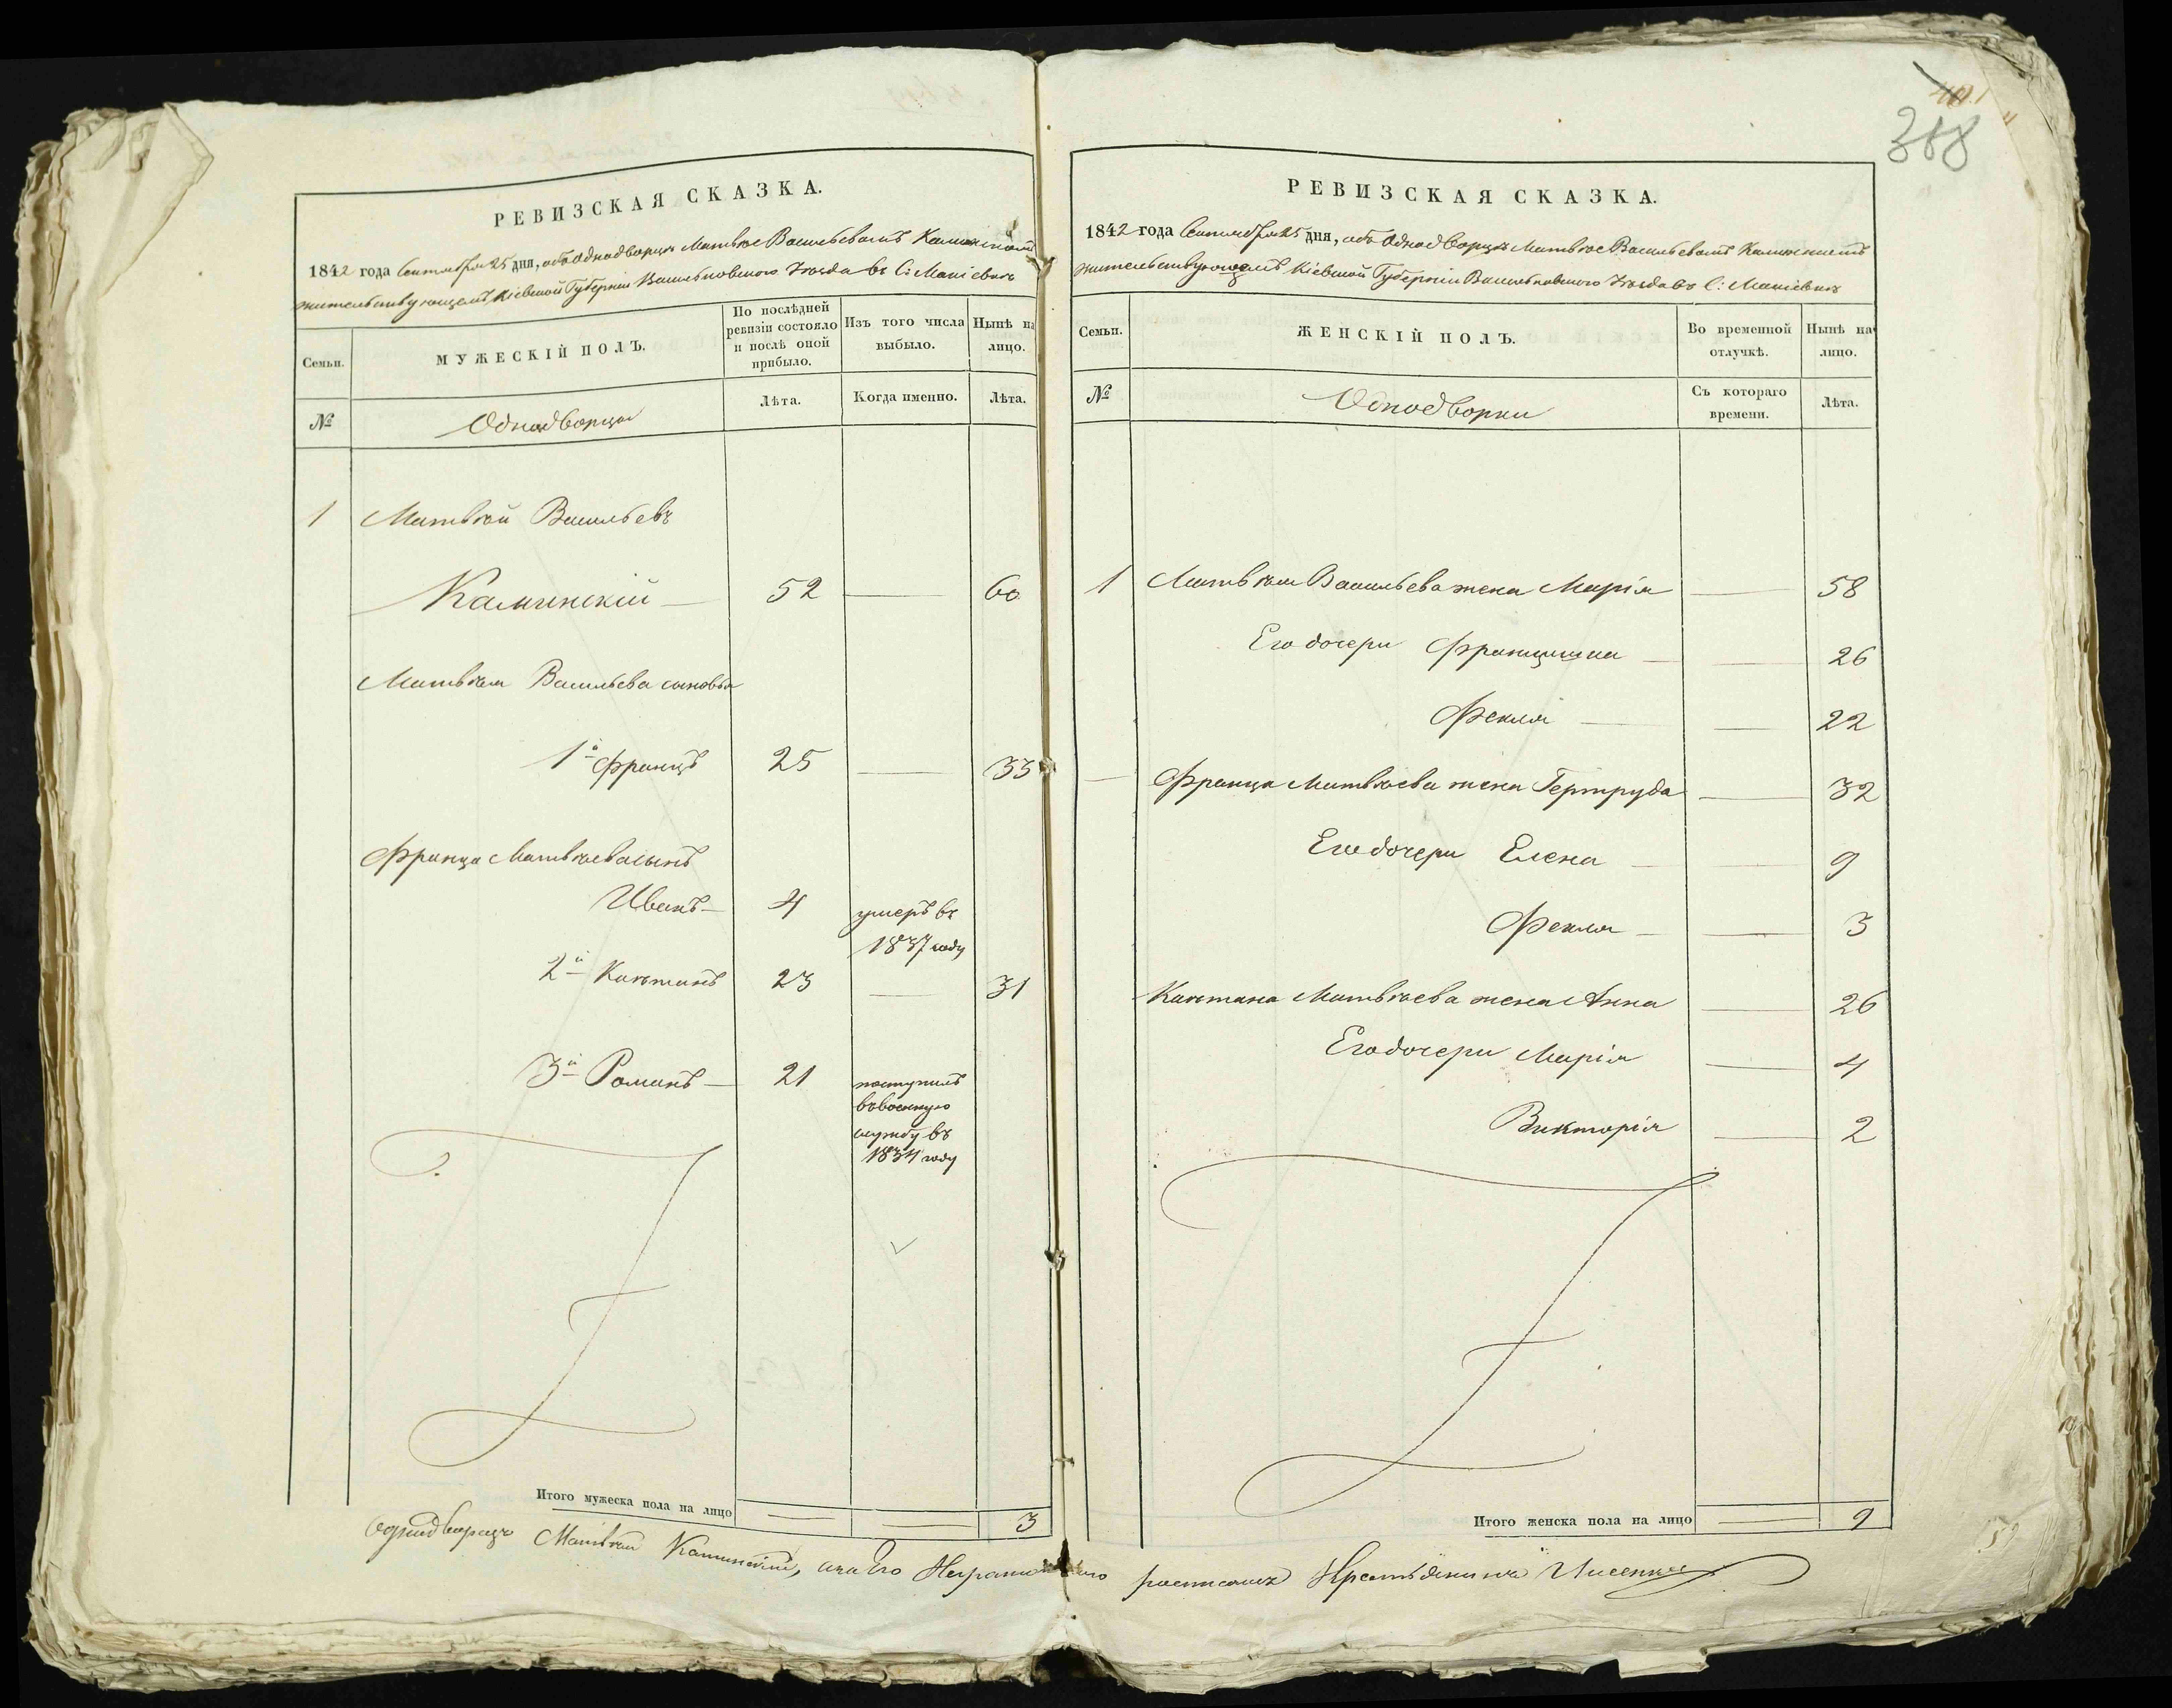 388
РЕВИЗСКАЯ СКАЗКА.
1842 года Сентября 25 дня, объ Однодворцѣ Матвѣе Васильевомъ Каминскомъ
жительствующемъ Кіевской Губерніи Васильковскаго Уѣзда въ С:
Семьи.
МУЖЕСКІЙ ПОЛЪ.
По послѣдней ревизіи состояло и послѣ оной прибыло.
Изъ того числа выбыло.
Нынѣ на лицо.
№
Однодворцы
Лѣта.
Когда именно.
Лѣта.
1 Матвѣй Васильевъ
Каминскій — 52 — 60
Матвѣя Васильева сыновья
1й Францъ 25 — 33
Франца Матвѣева сынъ
Иванъ — 4 умеръ въ
1837 году
2й Каэтанъ 23 — 31
3й Романъ — 21 поступилъ
въ военную
службу въ
1834 году
Итого мужеска пола на лицо 3
РЕВИЗСКАЯ СКАЗКА.
1842 года Сентября 25 дня, объ Однодворцѣ Матвѣе Васильевомъ Каминскомъ
жительствующемъ Кіевской Губерніи Васильковскаго Уѣзда въ С:
Семьи.
ЖЕНСКІЙ ПОЛЪ.
Во временной отлучкѣ.
Нынѣ на лицо.
№
Однодворки
Съ котораго времени.
Лѣта.
1 Матвѣя Васильева жена Марія — 58
Его дочери Францишка — 26
Фекля — 22
Франца Матвѣева жена Гертруда — 32
Его дочери Елена — 9
Фекля — 3
Каэтана Матвѣева жена Анна — 26
Его дочери Марія — 4
Викторія — 2
Итого женска пола на лицо 9
Однодворецъ Матвѣй Каминскій, а за его росписался